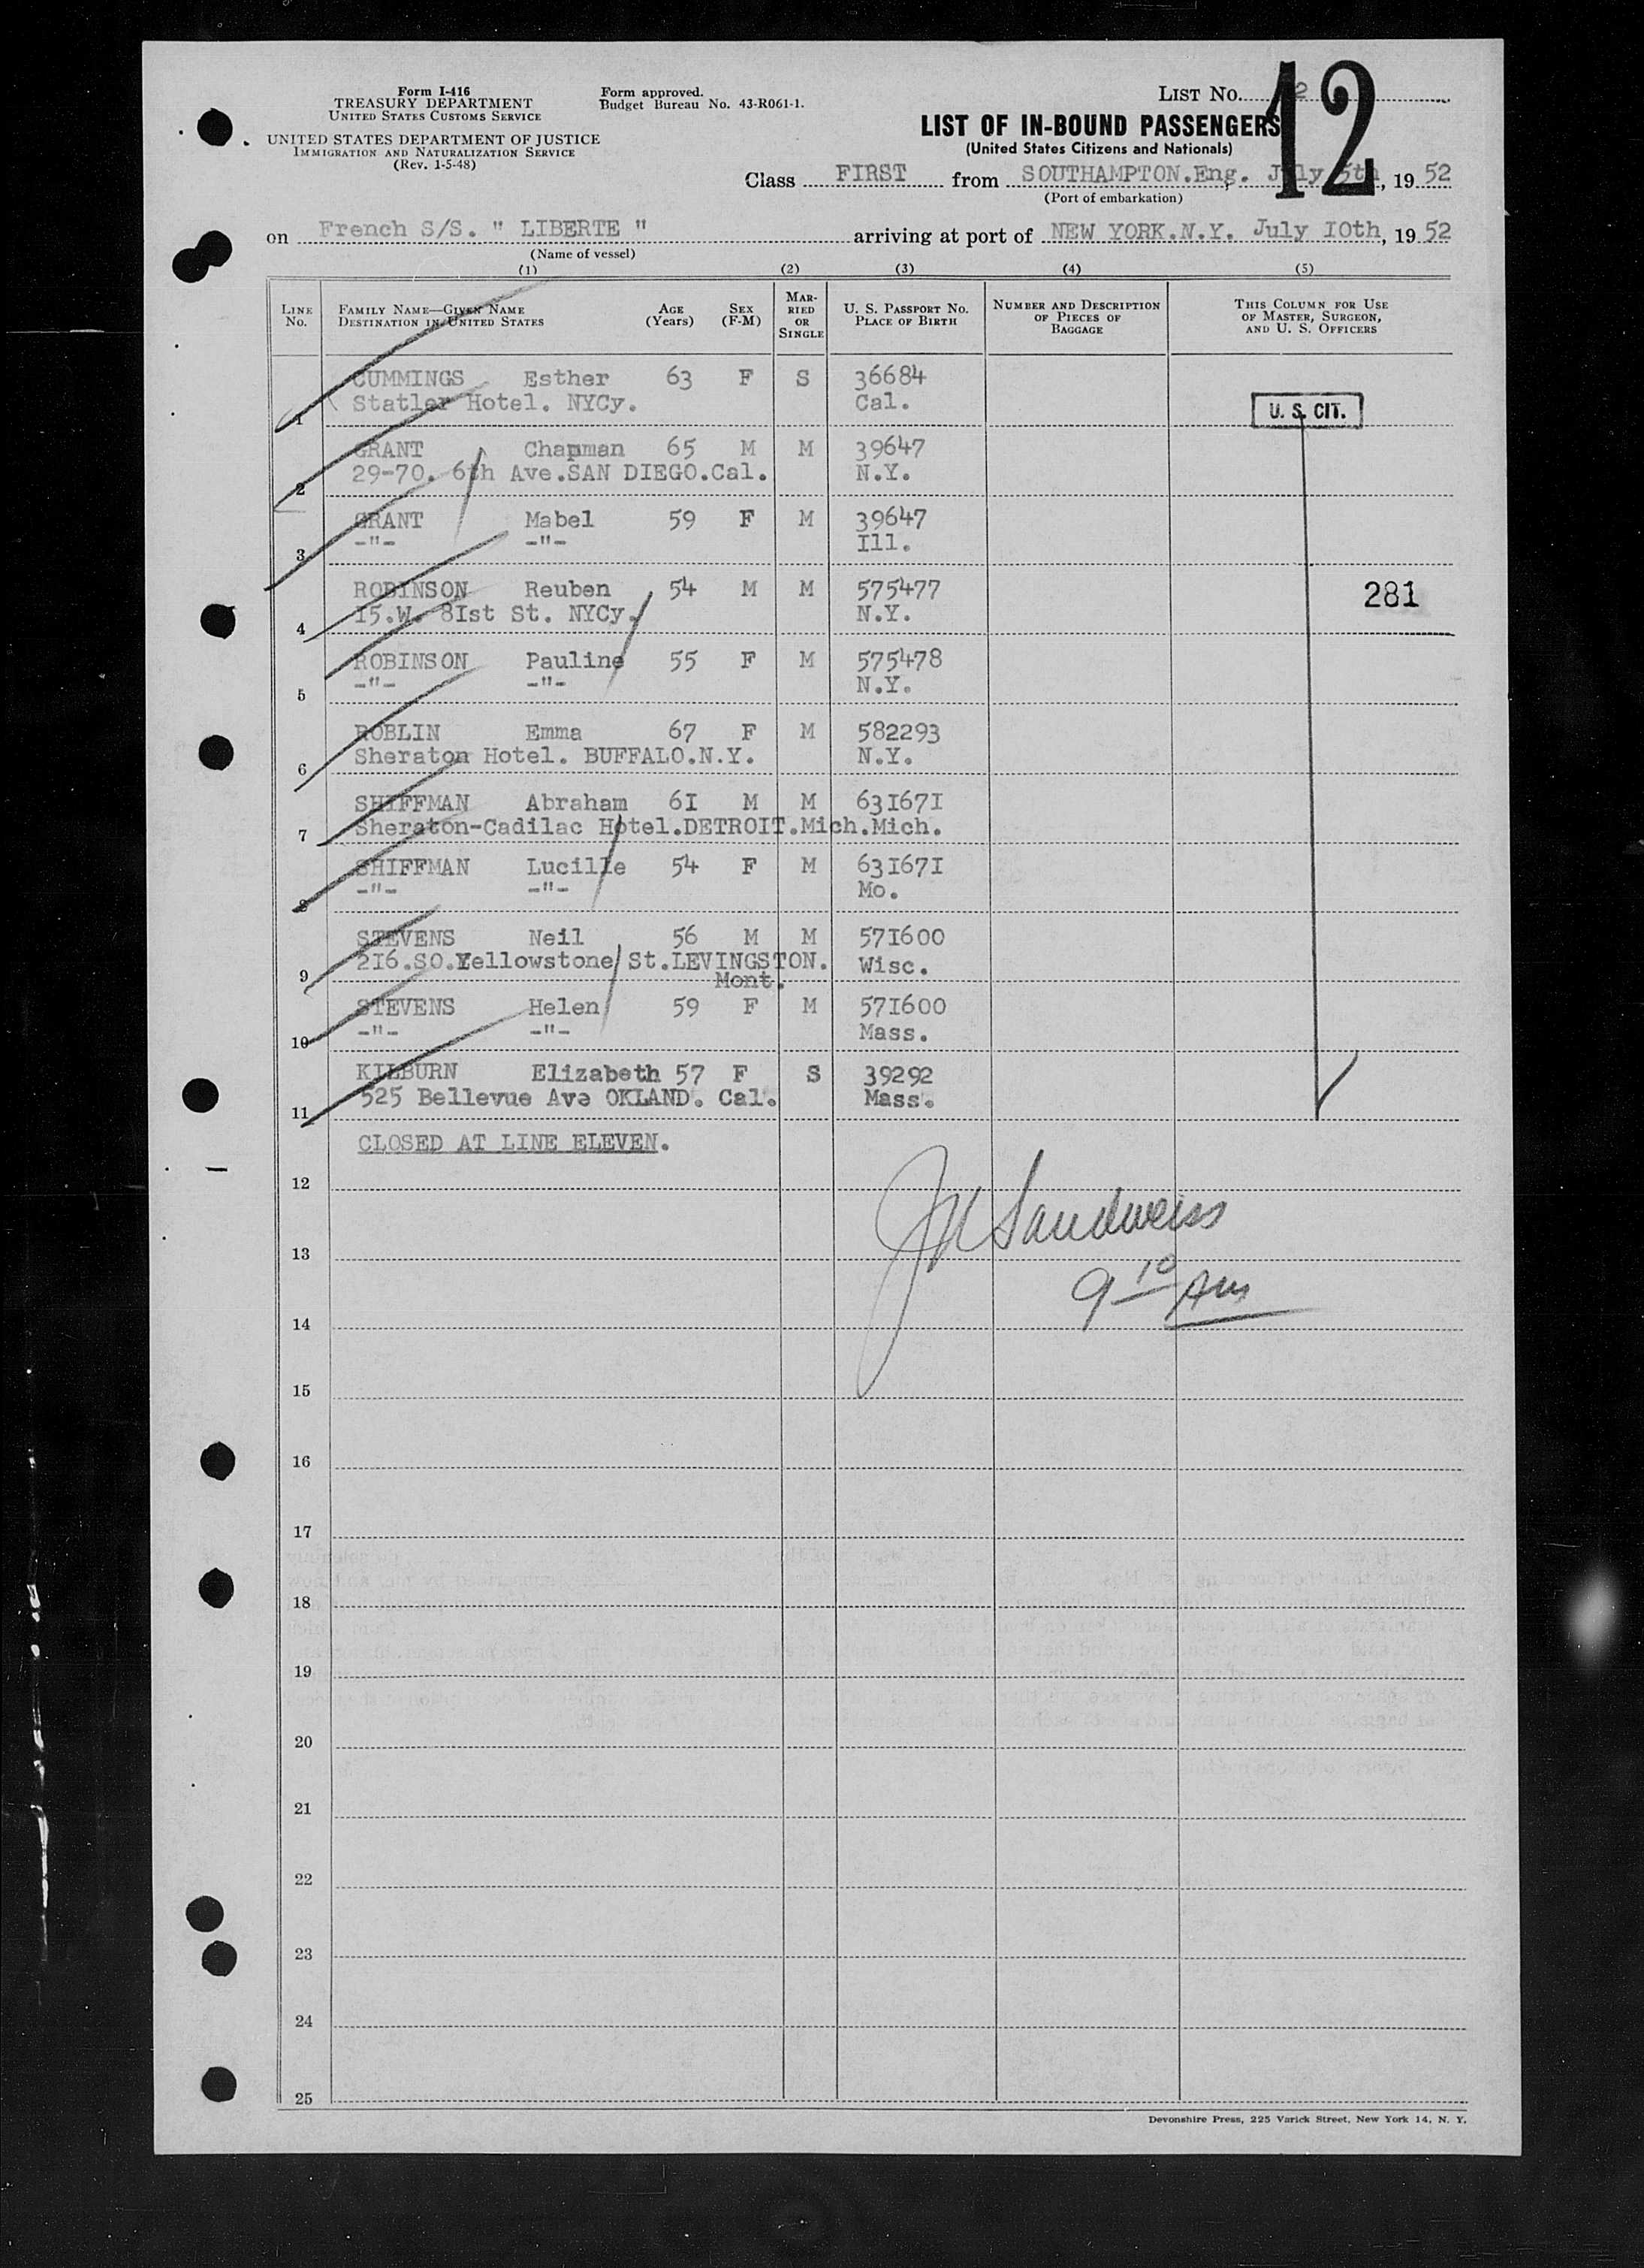 Form I-416
TREASURY DEPARTMENT
UNITED STATES CUSTOMS SERVICE
UNITED STATES DEPARTMENT OF JUSTICE
IMMIGRATION AND NATURALIZATION SERVICE
(Rev. 1-5-48)
Form approved.
Budget Bureau No. 43-R061-1.
LIST No. 2
12
LIST OF IN-BOUND PASSENGERS
(United States Citizens and Nationals)
Class FIRST from SOUTHAMPTON.Eng. July 5th, 19 52
(Port of embarkation)
on French S/S. " LIBERTE " arriving at port of NEW YORK.N.Y. July IOth, 19 52
(Name of vessel)
(1) (2) (3) (4) (5)
LINE No. FAMILY NAME—GIVEN NAME DESTINATION IN UNITED STATES AGE (Years) SEX (F-M) MARRIED OR SINGLE U. S. PASSPORT No. PLACE OF BIRTH NUMBER AND DESCRIPTION OF PIECES OF BAGGAGE THIS COLUMN FOR USE OF MASTER, SURGEON, AND U. S. OFFICERS
CUMMINGS Esther 63 F S 36684
1 Statler Hotel. NYCy. Cal. U. S. CIT.
GRANT Chapman 65 M M 39647
2 29-70. 6th Ave.SAN DIEGO.Cal. N.Y.
GRANT Mabel 59 F M 39647
3 -"- -"- Ill.
ROBINSON Reuben 54 M M 575477 281
4 I5.W. 8Ist St. NYCy. N.Y.
ROBINSON Pauline 55 F M 575478
5 -"- -"- N.Y.
ROBLIN Emma 67 F M 582293
6 Sheraton Hotel. BUFFALO.N.Y. N.Y.
SHIFFMAN Abraham 6I M M 63I67I
7 Sheraton-Cadilac Hotel.DETROIT.Mich.Mich.
SHIFFMAN Lucille 54 F M 63I67I
8 -"- -"- Mo.
STEVENS Neil 56 M M 57I600
9 2I6.SO.Yellowstone St.LEVINGSTON. Wisc.
Mont.
STEVENS Helen 59 F M 57I600
10 -"- -"- Mass.
KILBURN Elizabeth 57 F S 39292
11 525 Bellevue Ave OKLAND. Cal. Mass.
CLOSED AT LINE ELEVEN.
12
Sandweiss
13
9 10 Am
14
15
16
17
18
19
20
21
22
23
24
25
Devonshire Press, 225 Varick Street, New York 14, N. Y.